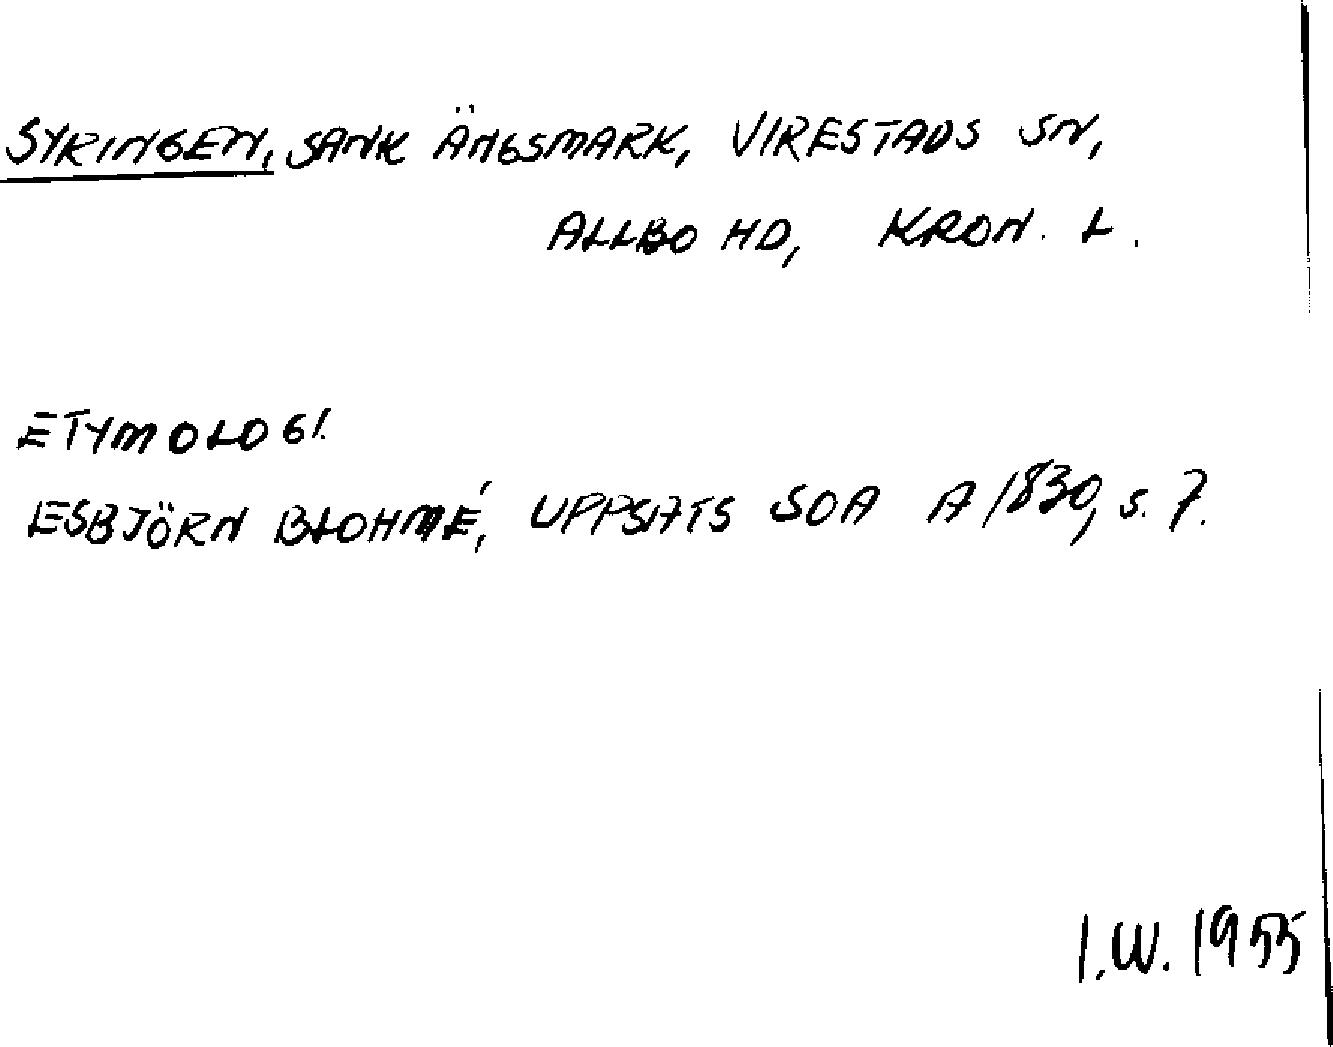 SYRINGEN, SANK ÄNGSMARK, VIRESTADS SN,
ALLBO HD, KRON. L.
ETYMOLOGI.
ESBJÖRN BLOHMÉ, UPPSATS SOA A 1830, s. 7.
I.W. 1955